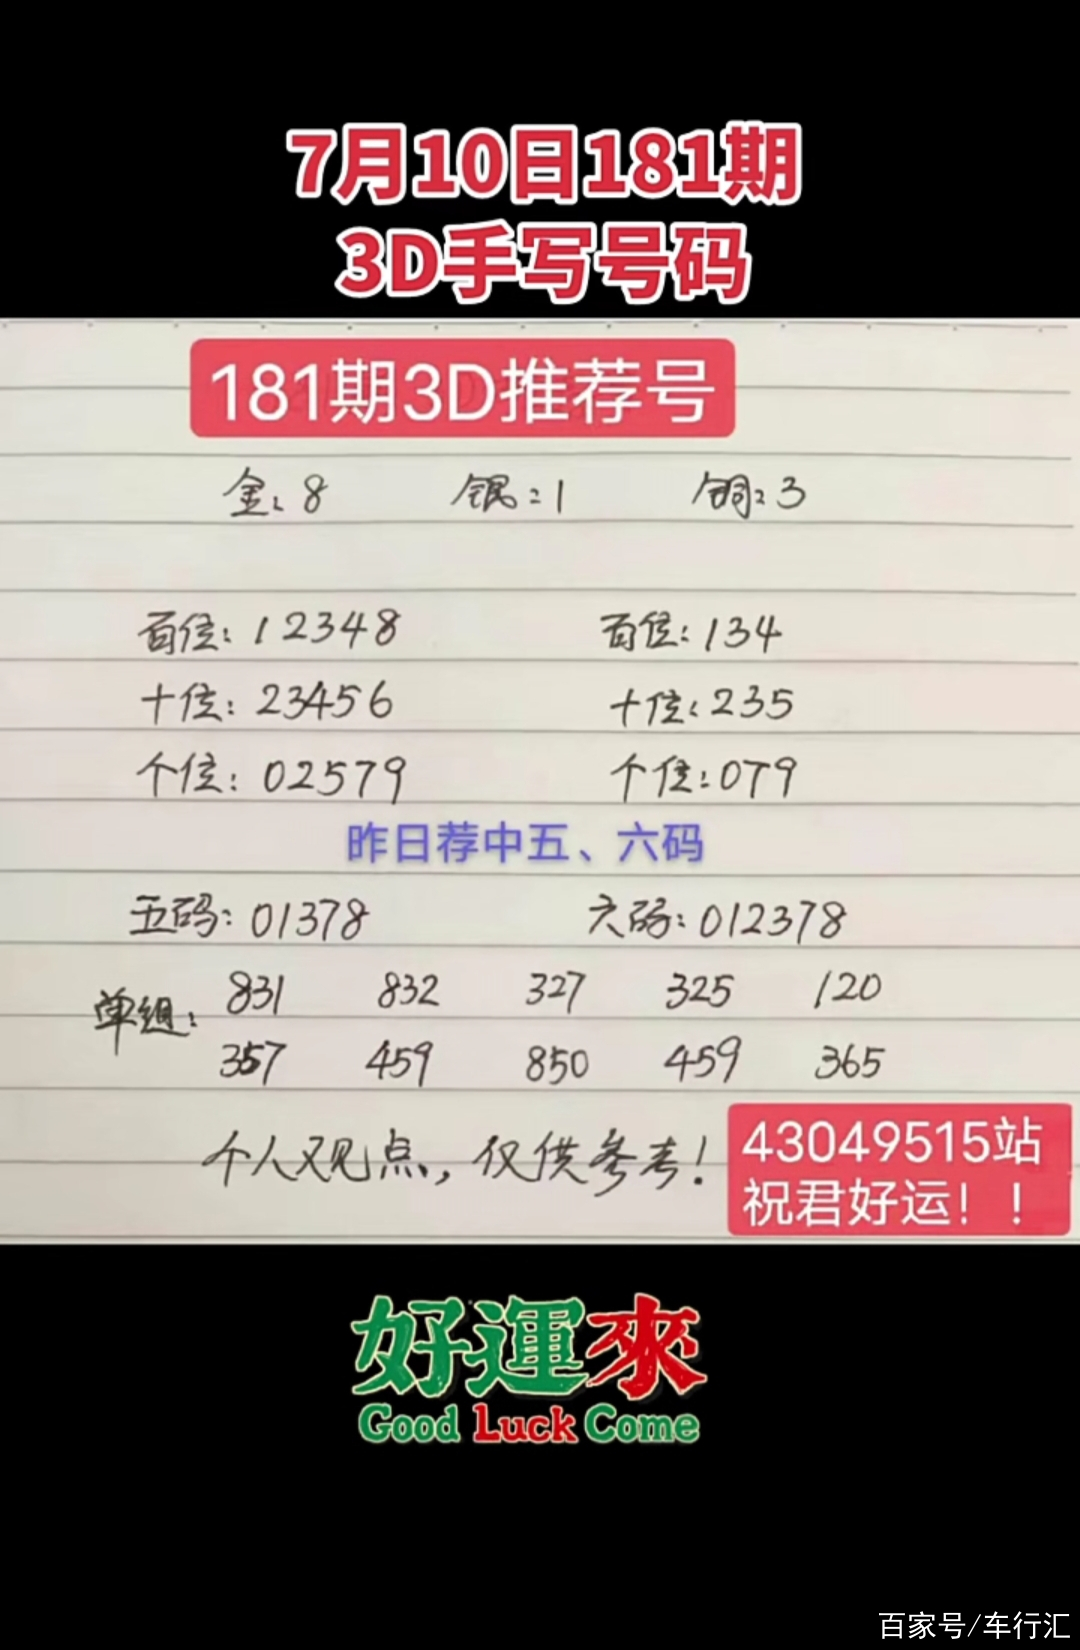 7月10日181期
3D手写号码
181期3D推荐号
金:8 银:1 铜:3
百位:12348 百位:134
十位:23456 十位:235
个位:02579 个位:079
昨日荐中五、六码
五码:01378 六码:012378
单组:
831 832 327 325 120
357 459 850 459 365
个人观点,仅供参考!
43049515站
祝君好运!!
好運來
Good Luck Come
百家号/车行汇